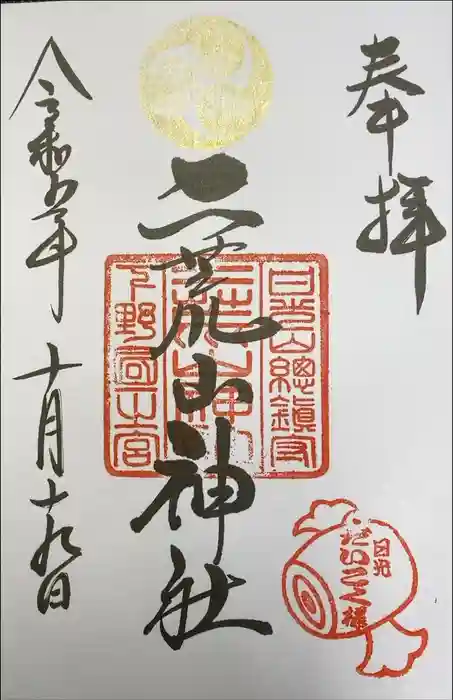 奉拝
日光山總鎮守
二荒山神社
下野國一之宮
令和 年 十月十九日
日光
だいこく様